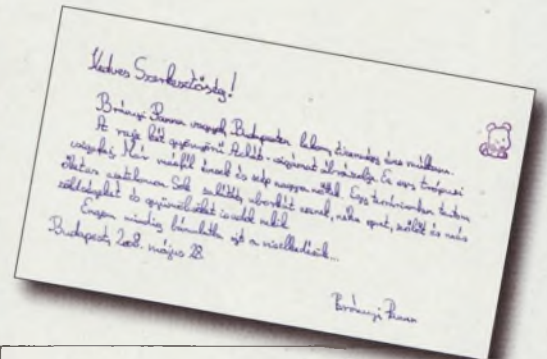 Kedves Szerkesztőség!
Brányi Panna vagyok, Budapesten lakom, tizenegy éves múltam.
Az rajz két gyönyörű Achát-csigámat ábrázolja. Ez egy trópusi
csigafaj. Már másfél évesek és szép nagyra nőttek. Egy terráriumban tudom
őket az asztalomon. Sok salátát, uborkát esznek, néha epret, szőlőt és más
zöldségeket és gyümölcsöket is adok nekik.
Engem mindig bámulatba ejt a viselkedésük...
Budapest, 2008. május 28.
Brányi Panna